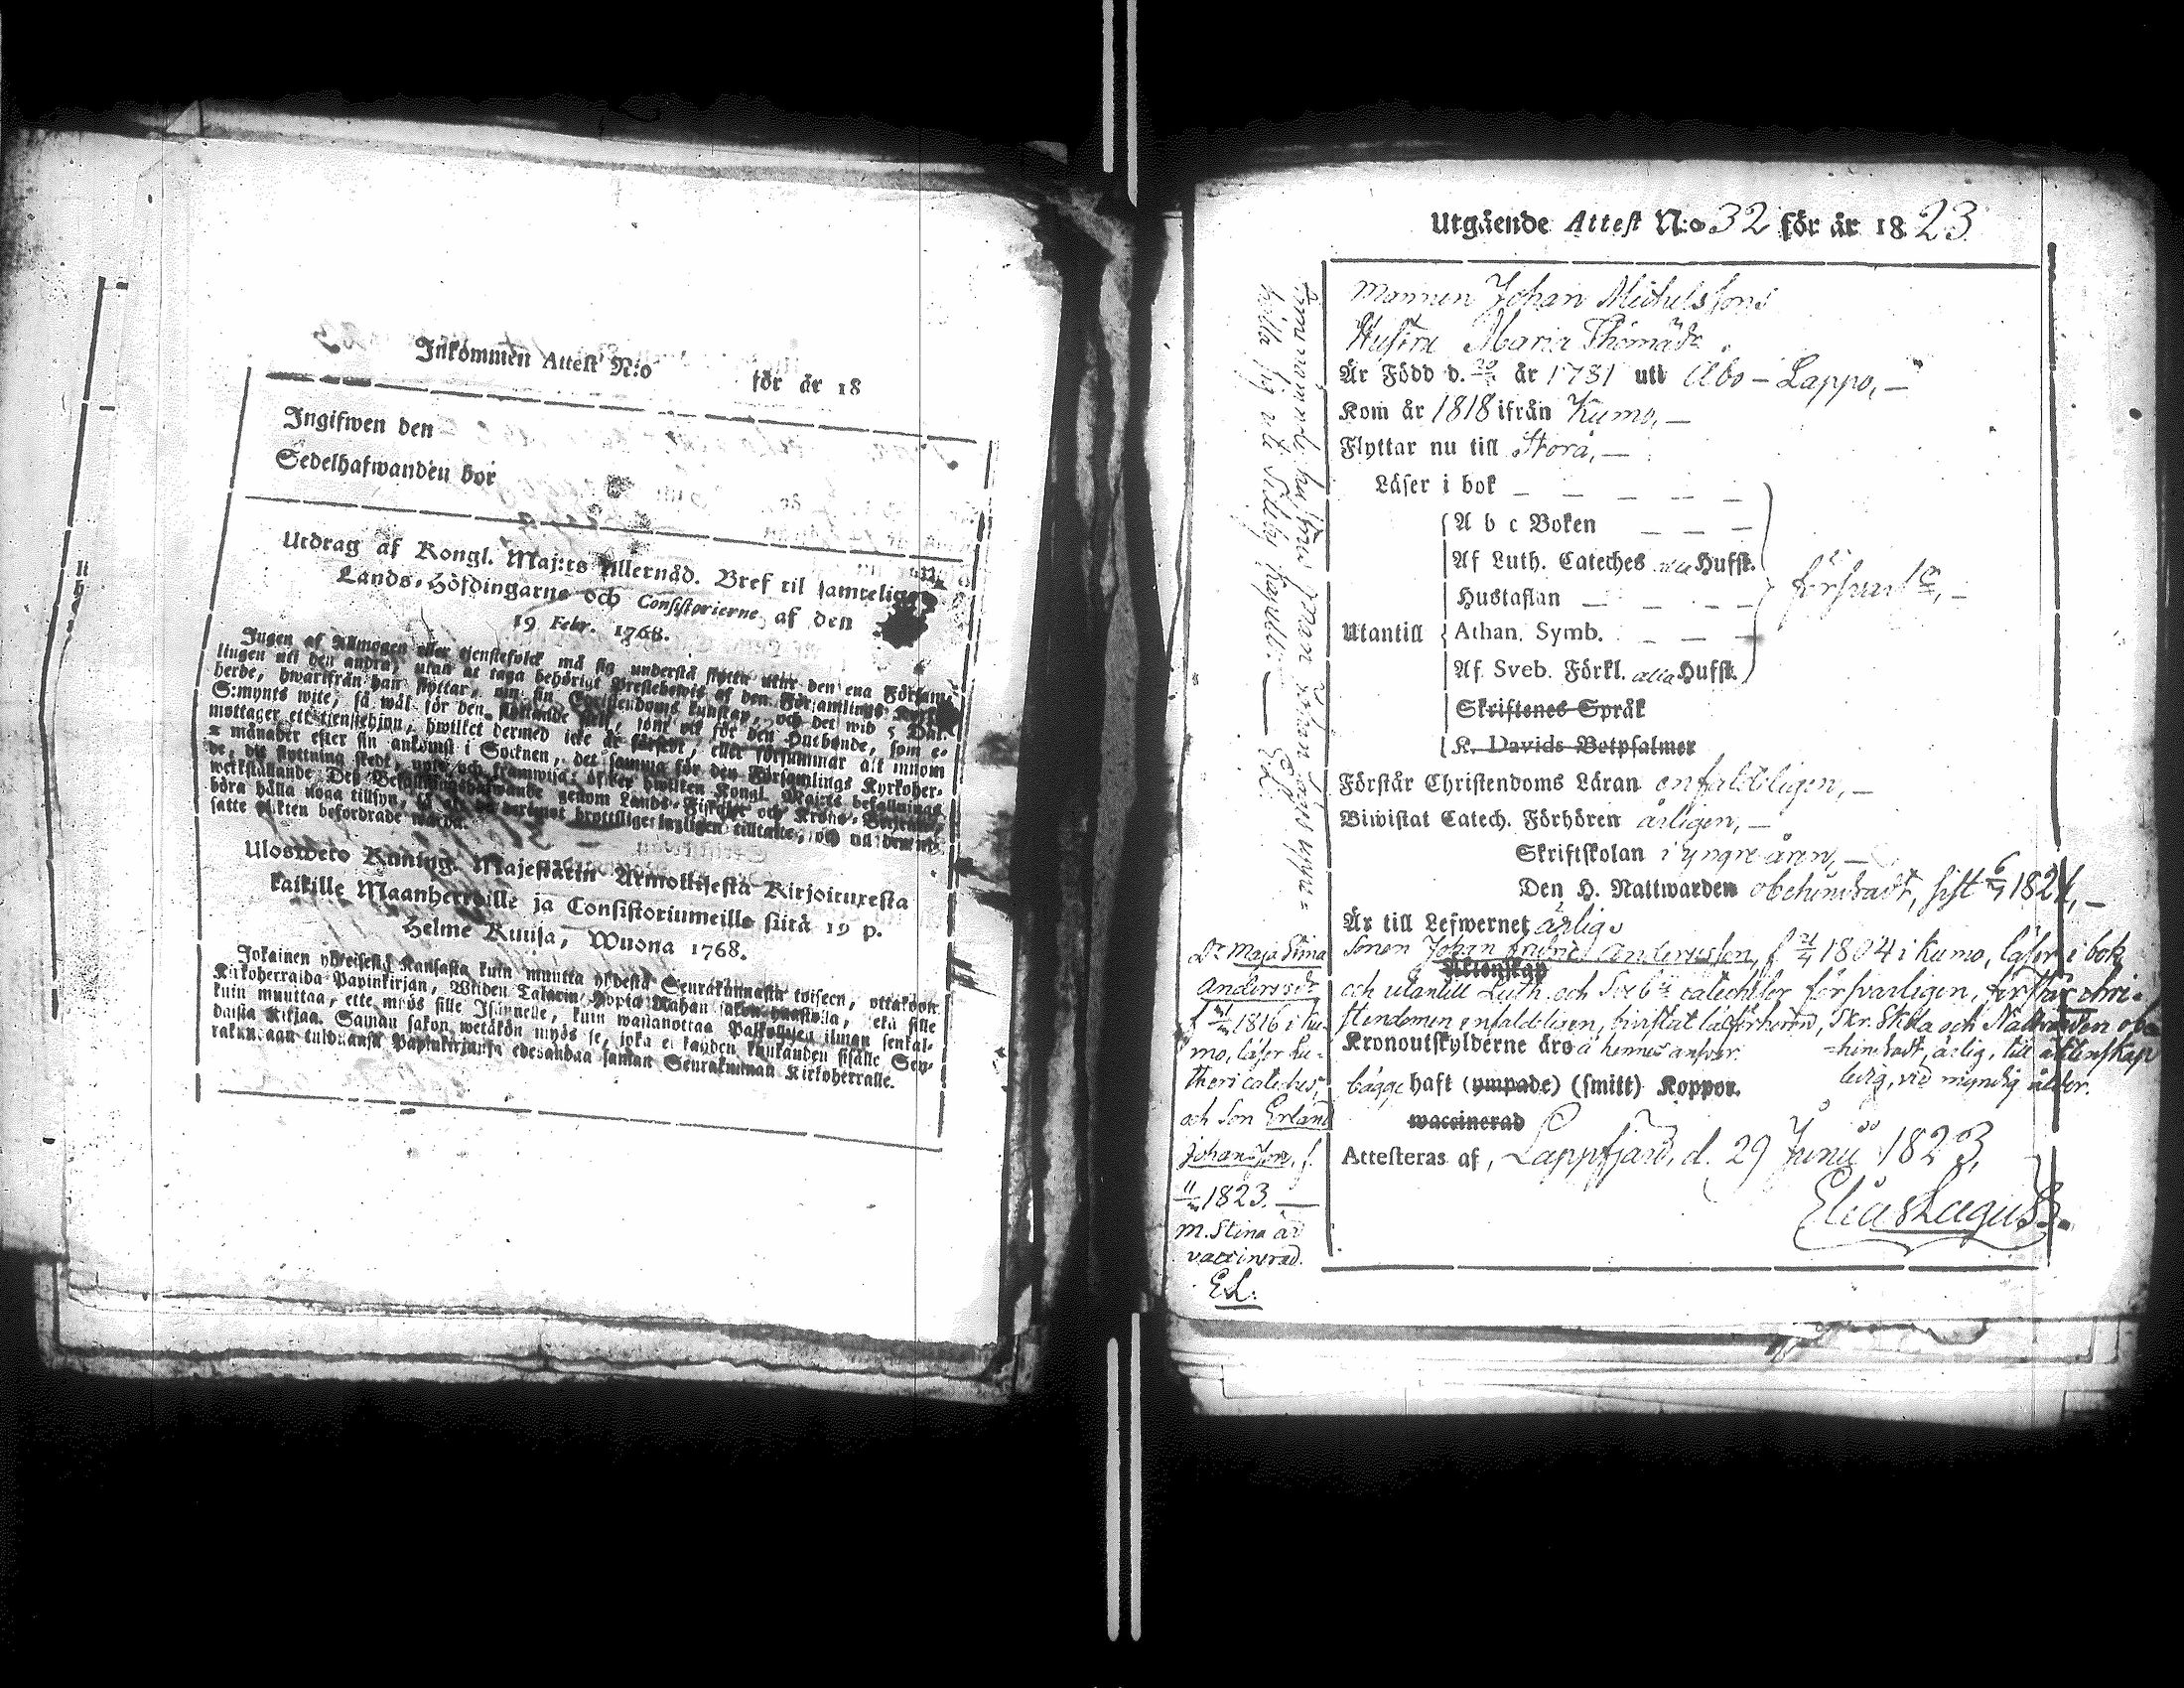 Inkommen Attest N:o för år 18
Ingifwen den
Sedelhafwanden bor
Utdrag af Kongl. Maj:ts Allernåd. Bref til samtelige
Lands-Höfdingarne och Consistorierne, af den
19 Febr. 1768.
Ingen af Allmogen eller tjenstefolck må sig understå flytta utur den ena Församlingen
uti den andra, utan at taga behörigt Prestebewis af den Församlings
herde, hwarifrån han flyttar, om sin Christendoms kunskap, och det wid 5 Dal.
S:mynts wite, så wäl för den flyttande sielf, som ock för den Husbonde, som e-
mottager ett tjenstehjon, hwilket dermed icke är försedt, eller försummar att innom
månader efter sin ankomst i Socknen, det samma för den Församlings Kyrkoher-
de, dit flyttning skedt, upte och framwisa; öfwer hwilken Kongl. Maj:ts befallnings
werkställande Des Befallningshafwande genom Lands-Fiscaler och Krono-Betjente
böra hålla noga tillsyn,
satte plikten befordrade warda.
Uloswero Kuning. Majestätin Armollisesta Kirjoituxesta
kaikille Maanherroille ja Consistoriumeille siitä 19 p.
Helme Kuusa, Wuona 1768.
Jokainen yhteisestä Kansasta kuin muutta yhdestä Seurakunnasta toiseen, ottakoon
Kirkoherralda Papinkirjan, Wijden Talarin Hopia Rahan sakon uhastolla, sekä sille
kuin muuttaa, ette myös sille Isännelle, kuin wastanottaa Palkollisen ilman senkal-
daista Kirjaa. Saman sakon wetäkön myös se, joka ei kahden kuukauden sisälle Seu-
rakundaan tulduansa Papinkirjansa edesandaa saman Seurakunnan Kirkoherralle.
Utgående Attest N:o 32 för år 1823
Mannen Johan Michelssons
Hustru Maria Thomädr
Är Född d. år 1781 uti Åbo - Lappo, -
Kom år 1818 ifrån Kumo, -
Flyttar nu till Storå, -
Läser i bok
A b c Boken
Af Luth. Cateches alla Hufst.
Hustaflan
försvarl.
Utantill Athan. Symb.
Af Sveb. Förkl. alla Hufst.
Skriftenes Språk
K. Davids Botpsalmer
Förstår Christendoms Läran enfaldeligen, -
Biwistat Catech. Förhören årligen, -
Skriftskolan i yngre åren, -
Den H. Nattwarden obehindradt, sist 6/7 1824, -
Är till Lefwernet ärlig.
Sonen Johan Andersson, f 1804 i Kumo, läser i bok
Äktenskap
och utantill Luth. och Sveb. catecheser försvarligen, förstår chri-
stendomen enfaldeligen, bivistat läsförhören, Skr. Skola och Nattvarden obe
Kronoutskylderne äro å hennes ansvar. =hindradt, ärlig, till äktenskap
ledig, vid myndig ålder.
bägge haft (ympade) (smitt) Koppor.
waccinerad
Attesteras af, Lappfjärd, d. 29 Junii 1823,
Elias Lagus
Dr Maja Stina
Andersdr
f 1816 i Ku-
mo, läser Lu-
theri cateches,
och son Erland
Johansson, f.
1823. -
M. Stina är
vaccinerad.
EL.